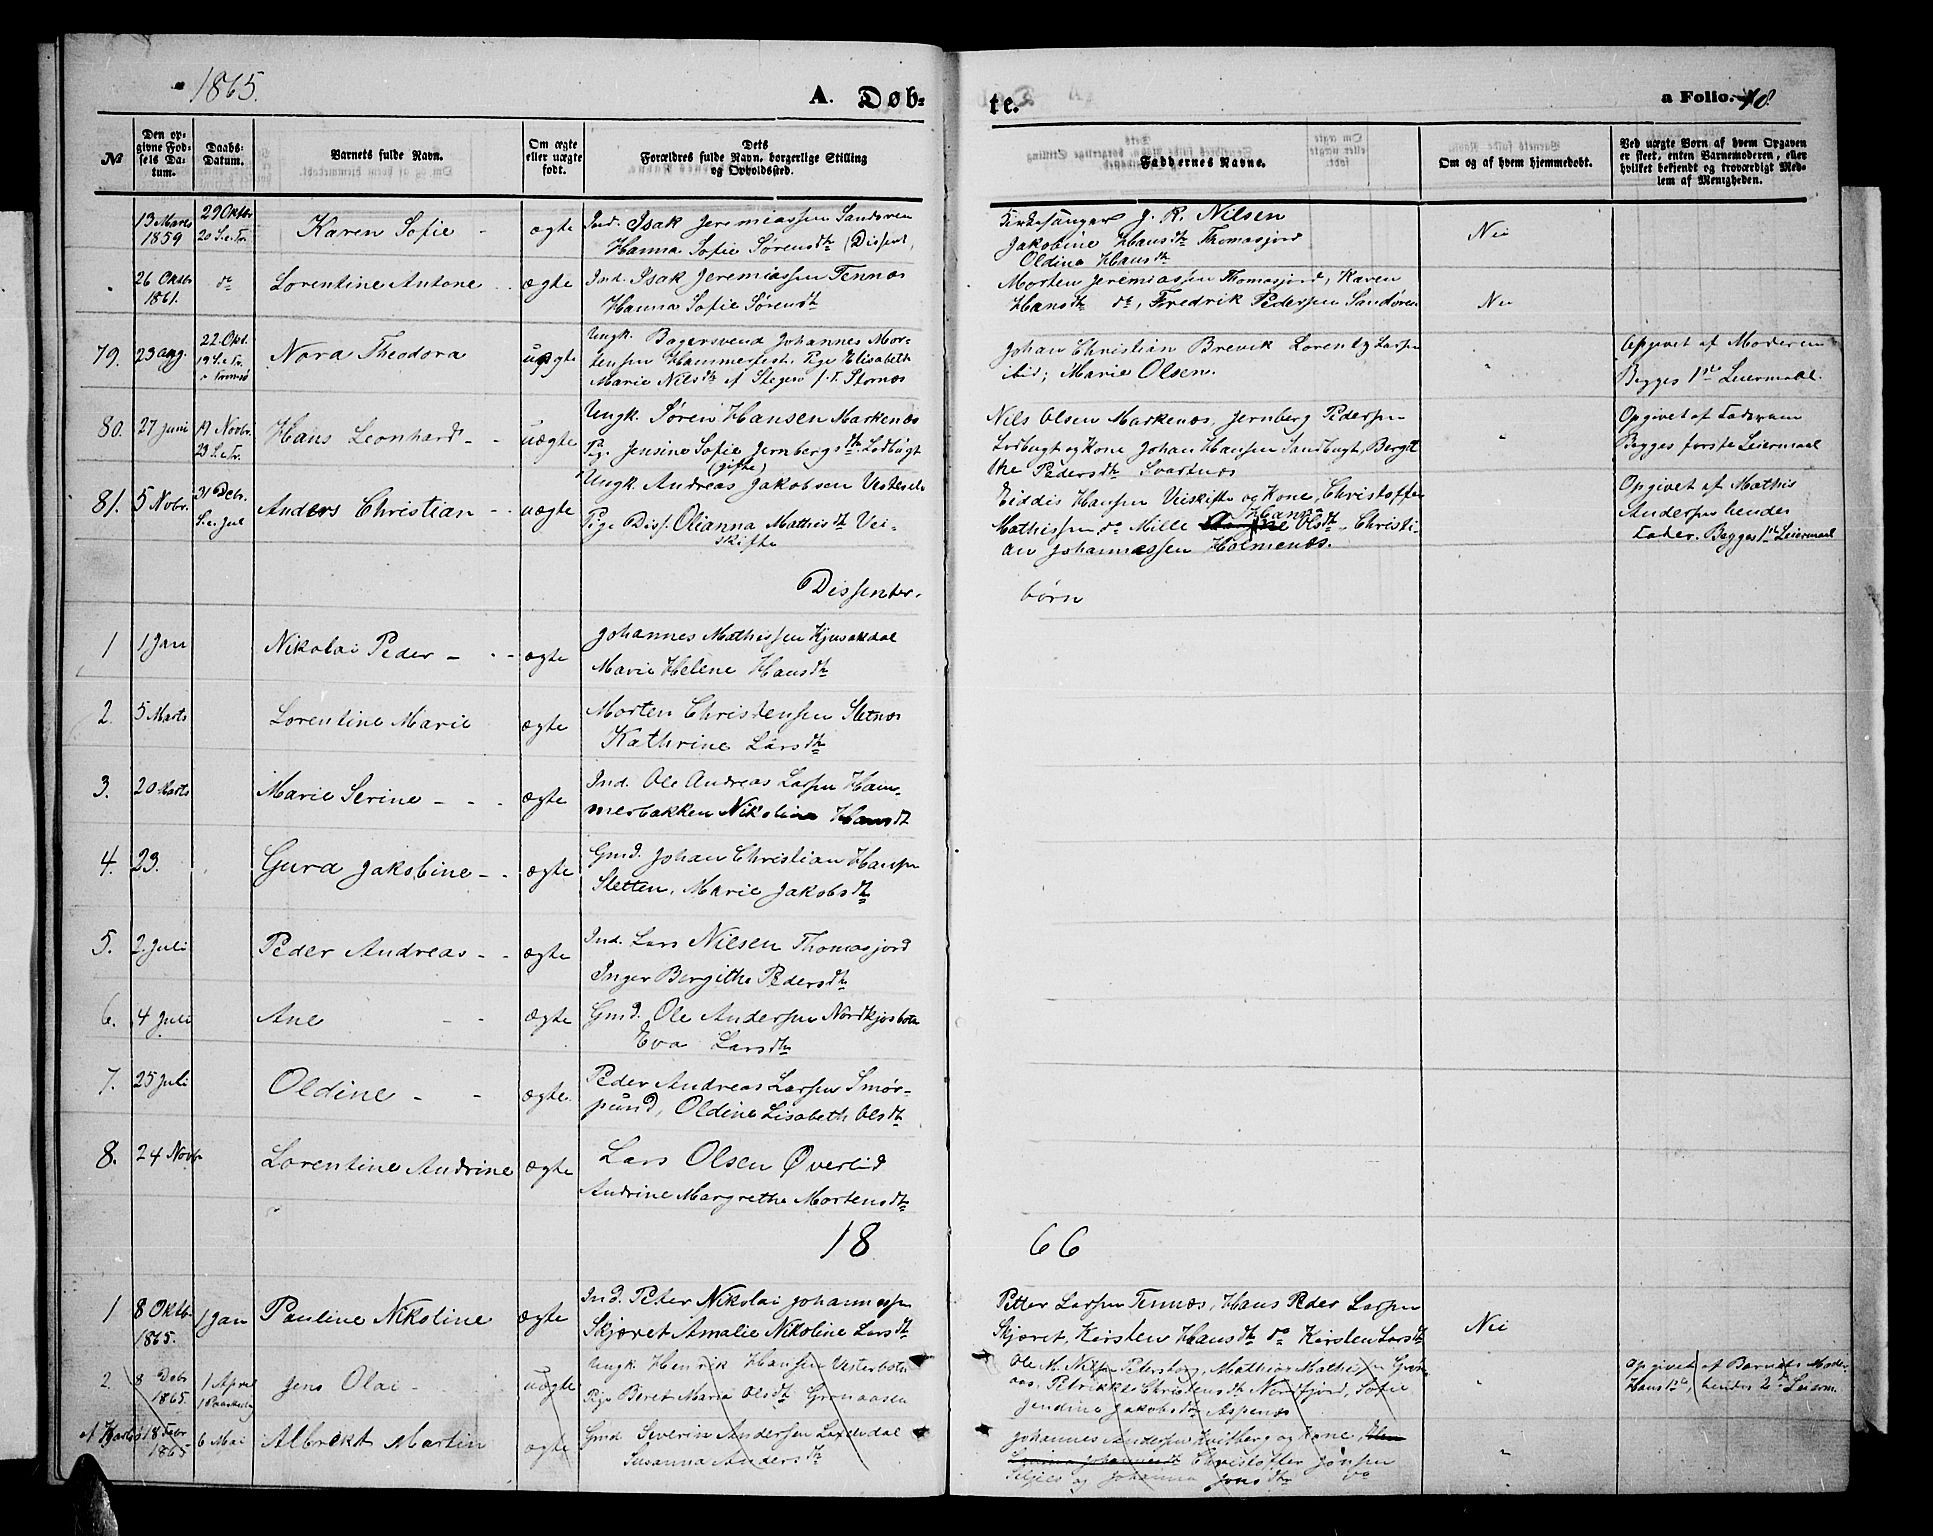 1865.
A. Døb-
te.
a Folio. 48
No
Den op-
givne Fød-
sels Da-
tum.
Daabs-
Datum.
Barnets fulde Navn.
Om ægte
eller uægte
født.
Dets
Forældres fulde Navn, borgerlige Stilling
og Opholdssted.
Faddernes Navne.
Om og af hvem hjemmedøbt.
Ved uægte Børn af hvem Opgaven
er skeet, enten Barnemoderen, eller
hvilket bekjendt og troværdigt Med-
lem af Menigheden.
13 Marts
1859
29 Oktbr
20 S. e. Tr.
Karen Sofie
ægte
Ind. Isak Jeremiassen Sandøren
Hanna Sofie Sørensdtr (Dissent.
Kirkesanger J. R. Nilsen
Jakobine Hansdtr Thomasjord
Oldine Hansdtr
Nei
26 Oktbr
1861.
do
Lorentine Antone
ægte
Ind. Isak Jeremiassen Tennæs
Hanna Sofie Sørensdtr
Morten Jeremiassen Thomasjord, Karen
Hansdtr do, Fredrik Pedersen Sandøren
Nei
79.
23 Aug.
22 Okt.
19 S. e. Tr.
Nora Theodora
uægte
Ungk. Bagersvend Johannes Mor-
tensen Hammerfest. Pige Elisabeth
Marie Nilsdtr af Stegen f. T. Stornæs
Johan Christian Brevik Lorentz Larsen
ibid; Marie Olsen.
"
Opgivet af Moderen
Begges 1ste Leiermaal.
80.
27 Juni
19 Novbr.
23 S. e. Tr.
Hans Leonhard
uægte
Ungk. Søren Hansen Markenæs
Pg. Jensine Sofie Jernbergsdtr Lodbugt
Nils Olsen Markenæs, Jernberg Pedersen
Lodbugt og Kone Johan Hansen Sandbugt, Bergit
the Pedersdtr Svartnæs
"
Opgivet af Faderen
Begges første Leiermaal
81.
5 Novbr.
31 Debr.
S. e. Jul
Anders Christian
uægte
(gifte)
Ungk. Andreas Jakobsen Vestesele
Pige Diss. Olianna Mathisdtr Vei-
skifte
Eiddis Hansen Veiskifte og Kone, Christoffer
Mathissen do Mille Hanna Olsdtr, Christi-
an Johannessen Holmenæs.
Opgivet af Mathis
Andersen hendes
Fader. Begges 1ste Leiermaal
Dissenter-
børn
1
1 Jan
Nikolai Peder
ægte
Johannes Mathissen Kjusakdal
Marie Helene Hansdtr
2.
5 Marts
Lorentine Marie
ægte
Morten Christensen Sletnæs
Kathrine Larsdtr
3.
20 Marts
Marie Serine
ægte
Ind. Ole Andreas Larsen Ham-
merbakken Nikoline Hansdt
4.
23.
Gura Jakobine
ægte
Gmd. Johan Christian Hansen
Sletten, Marie Jakobsdtr
5.
2. Juli
Peder Andreas
ægte
Ind. Lars Nilsen Thomasjord
Inger Bergithe Pedersdtr
6.
4 Juli
Ane
ægte
Gmd. Ole Andersen Nordkjosbotn
Eva Larsdtr
7.
25 Juli
Oldine
ægte.
Peder Andreas Larsen Smør-
sund, Oldine Lisabeth Olsdtr
8.
24 Novbr
Lorentine Andrine
ægte
Lars Olsen Øverlid
Andrine Margrethe Mortensdtr
18
66
1
8 Oktb.
1865.
1 Jan
Pauline Nikoline
ægte
Ind. Peter Nikolai Johannessen
Skjæret Amalie Nikoline Larsdtr
Petter Larsen Tennæs, Hans Peder Larsen
Skjæret, Kirsten Hansdtr do Kirsten Larsdtr
Nei
2.
8 Debr
1865.
1 April
1 Paaskedag
Jens Olai
uægte
Ungk. Henrik Hansen Vesterbotn
Pige Beret Maria Olsdtr Grønaasen
Ole M. Nilsen Petersborg, Mathias Mathissen Grøn-
aas, Petrikke Christensdtr Nordfjord, Sofie
Jendine Jakobsdtr Aspenæs
"
Opgivet af Barnets Moder
Hans 1ste, hendes 2det Leierm.
18 Febr
1865
6 Mai
Albrekt Martin
ægte
Gmd Severin Andersen
Susanna Andersdtr
Johannes Andersen Kvitberg og Kone,
Christoffer Jonsen
og Johanna Jonsdtr do
"